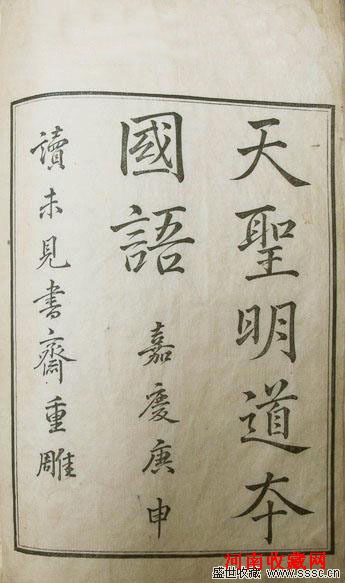 天聖明道本
國語 嘉慶庚申
讀未見書齋重雕
河南收藏网
盛世收藏 www.sssc.cn